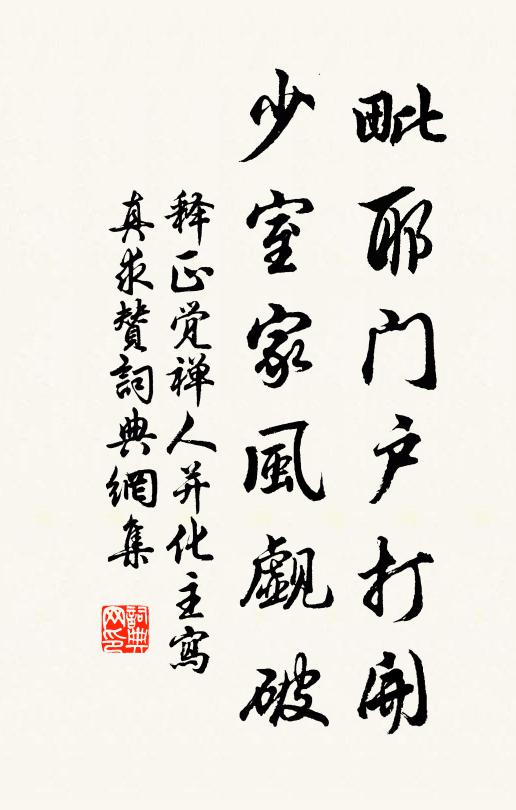 毗耶门户打開
少室家風覷破
释正觉禅人并化主寫
真求賛詞典網集
詞典網印